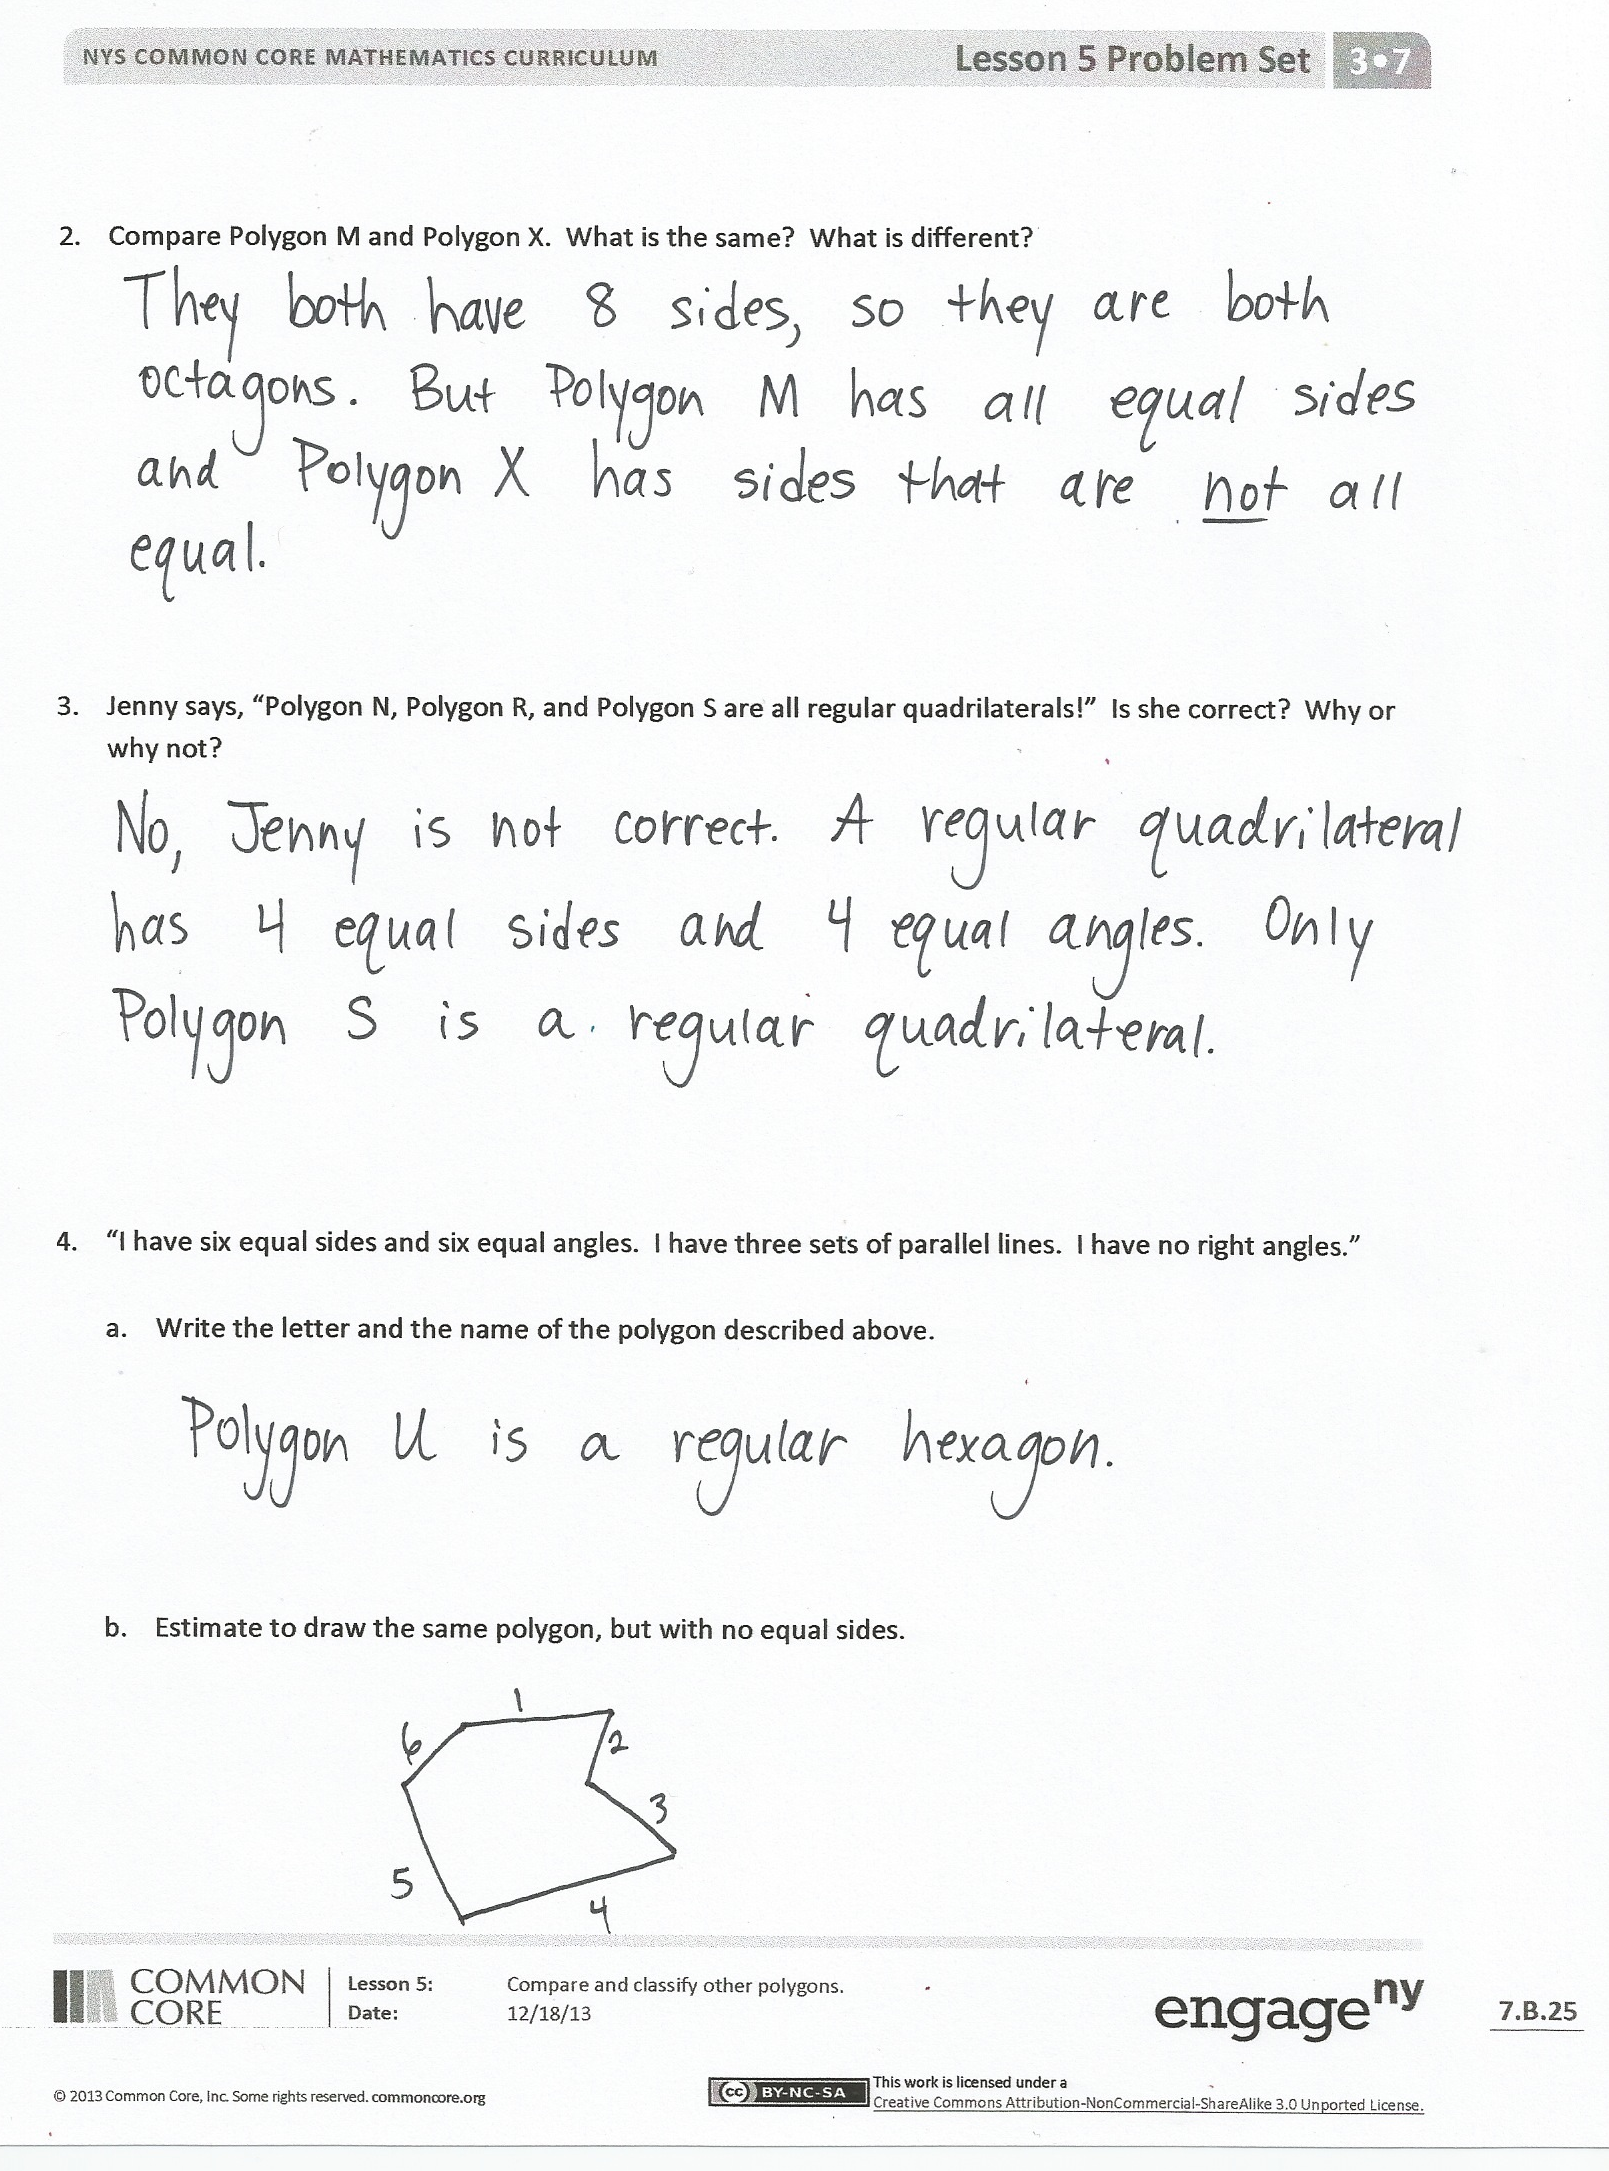 NYS COMMON CORE MATHEMATICS CURRICULUM Lesson 5 Problem Set 3•7
2. Compare Polygon M and Polygon X. What is the same? What is different?
They both have 8 sides, so they are both
octagons. But Polygon M has all equal sides
and Polygon X has sides that are not all
equal.
3. Jenny says, “Polygon N, Polygon R, and Polygon S are all regular quadrilaterals!” Is she correct? Why or
why not?
No, Jenny is not correct. A regular quadrilateral
has 4 equal sides and 4 equal angles. Only
Polygon S is a regular quadrilateral.
4. “I have six equal sides and six equal angles. I have three sets of parallel lines. I have no right angles.”
a. Write the letter and the name of the polygon described above.
Polygon U is a regular hexagon.
b. Estimate to draw the same polygon, but with no equal sides.
1
6
2
3
5
4
COMMON
CORE
Lesson 5: Compare and classify other polygons.
Date: 12/18/13
engage ny
7.B.25
© 2013 Common Core, Inc. Some rights reserved. commoncore.org
cc BY-NC-SA
This work is licensed under a
Creative Commons Attribution-NonCommercial-ShareAlike 3.0 Unported License.